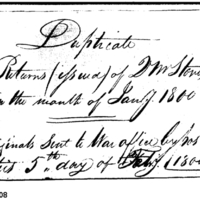 Duplicate
Returns issued of D M Stores
in the month of Jany. 1800
Originals Sent to War office by post
5th day of Feby. 1800
08